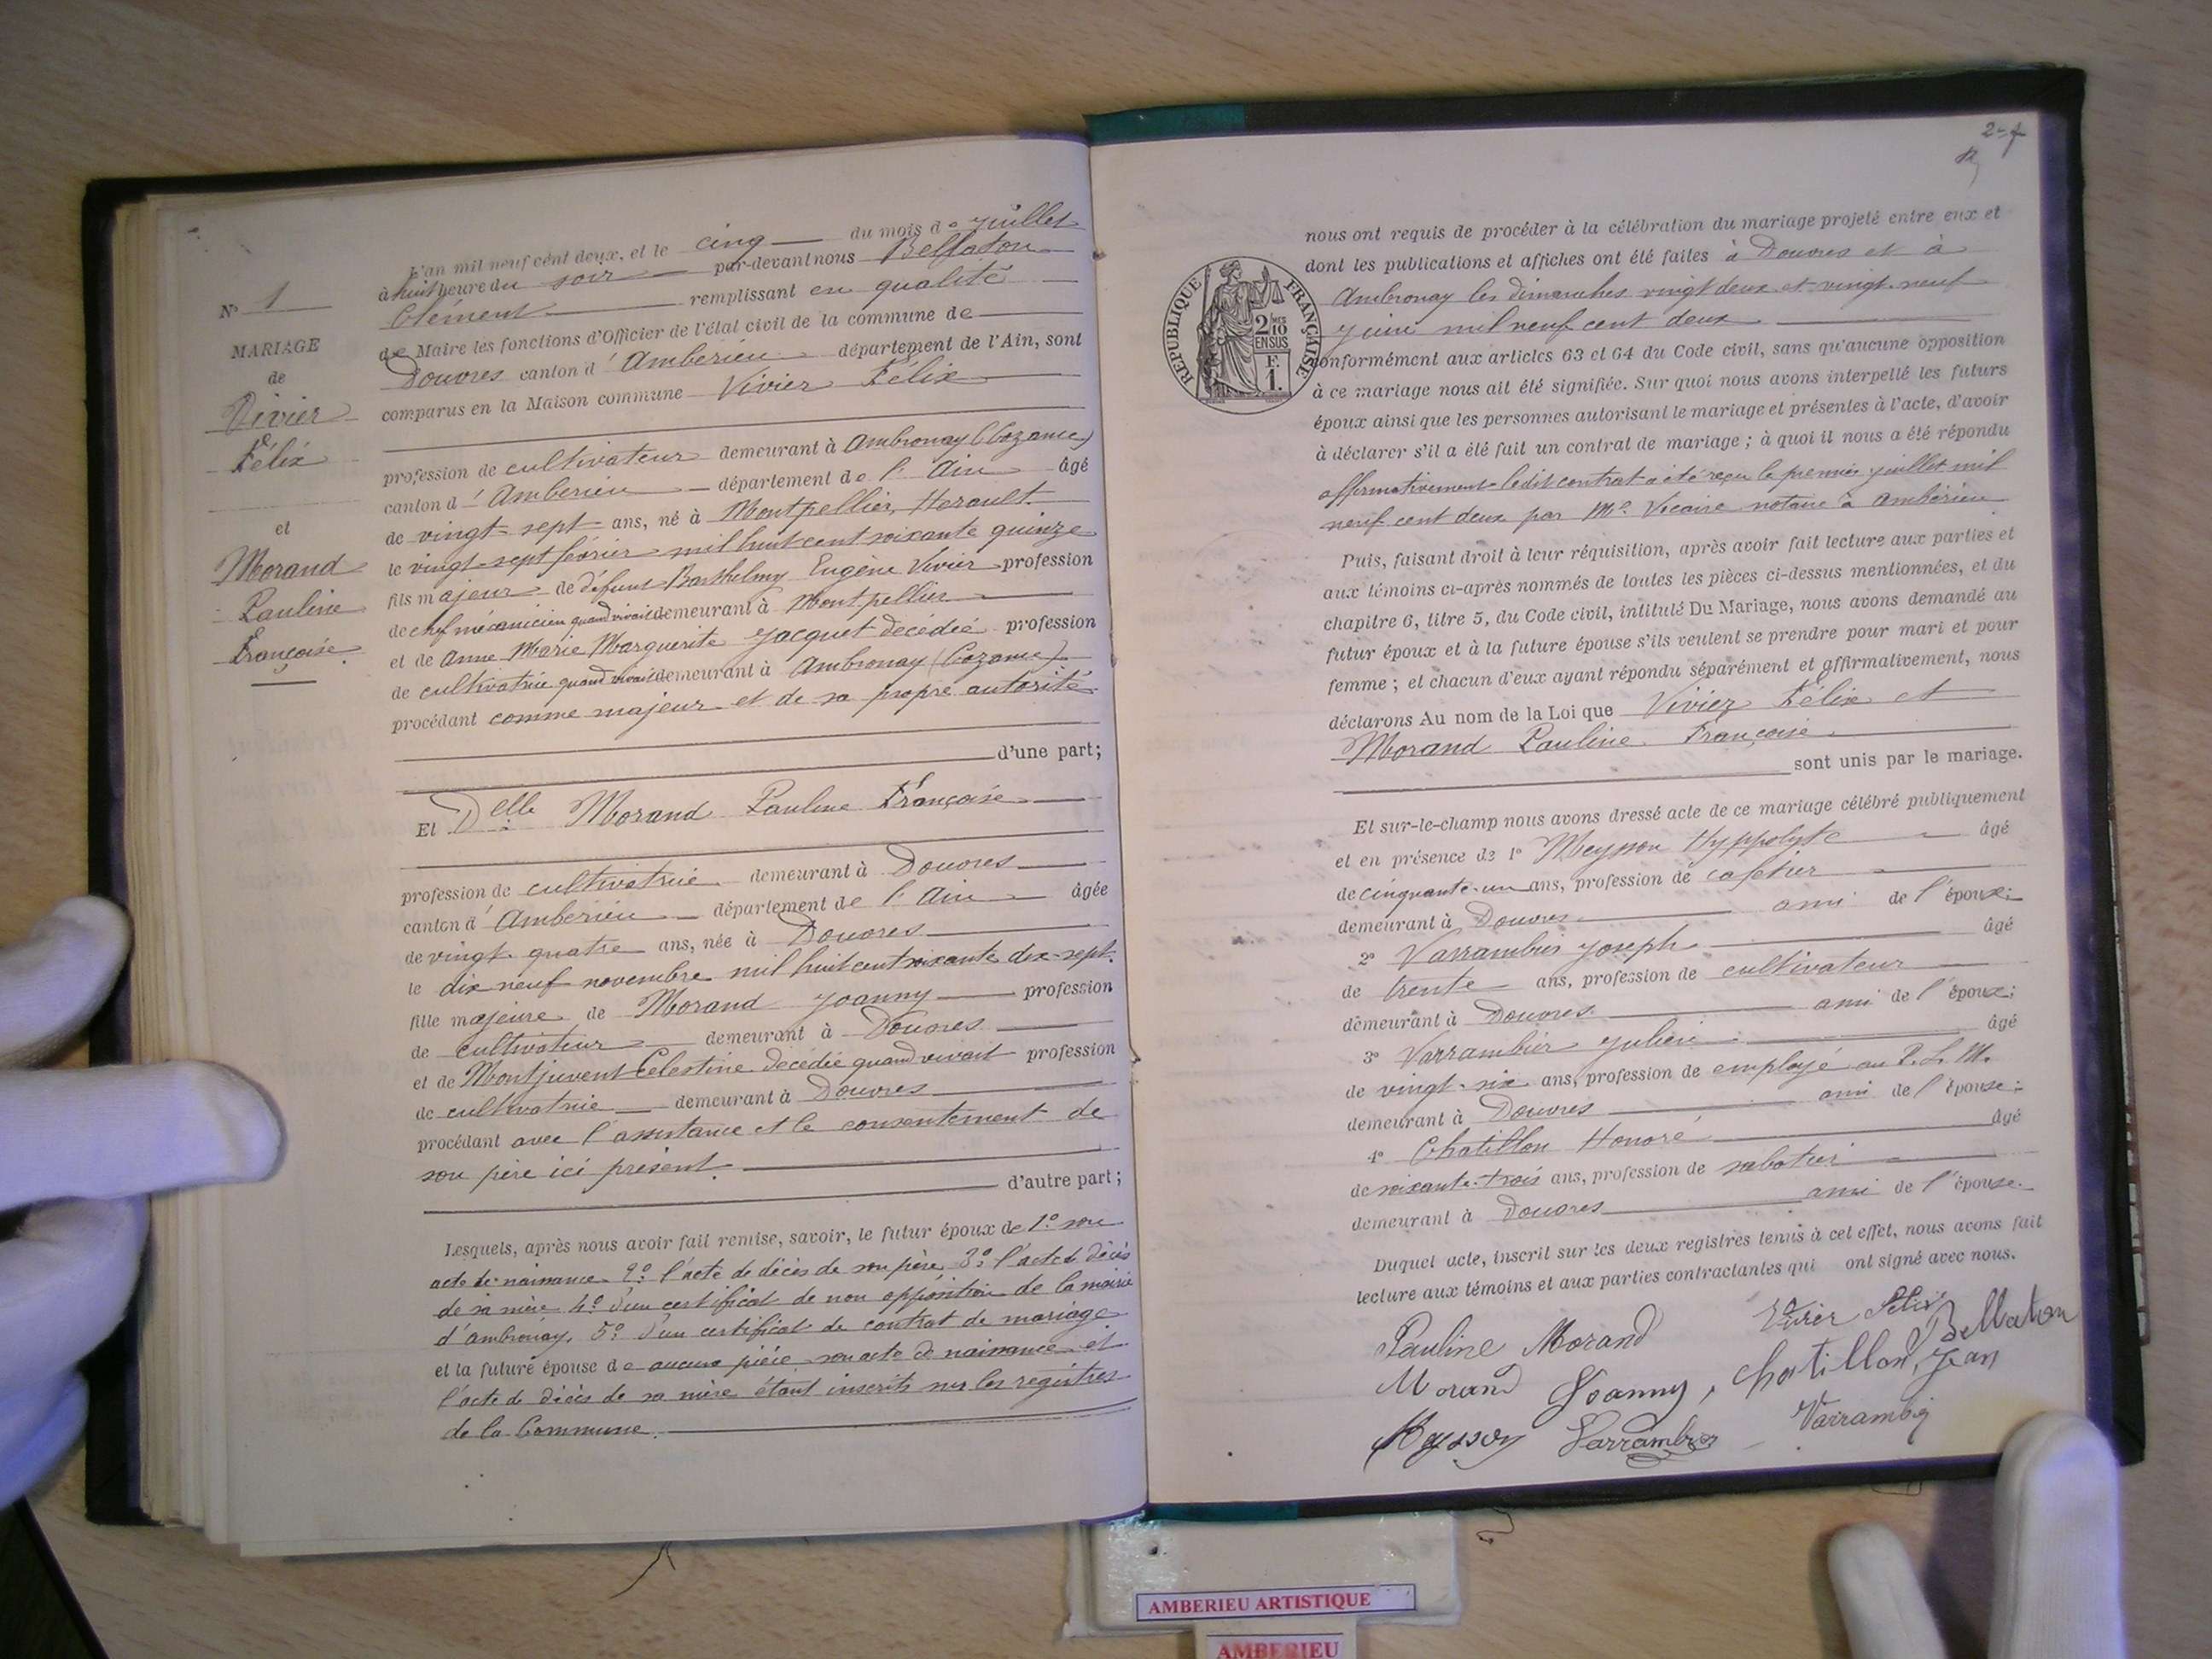 N° 1
MARIAGE
de
Vivier
Félix
et
Morand
Pauline
Françoise
L'an mil neuf cent deux, et le cinq du mois de Juillet
à huit heure du soir par-devant nous Bellaton
Clément remplissant en qualité
de Maire les fonctions d'Officier de l'état civil de la commune de
Douvres canton d'Ambérieu département de l'Ain, sont
comparus en la Maison commune Vivier Félix
profession de cultivateur demeurant à Ambronay (Cozance)
canton d'Ambérieu département de l'Ain âgé
de vingt-sept ans, né à Montpellier, Herault
le vingt-sept février mil huit cent soixante quinze
fils majeur de défunt Barthelmy Eugène Vivier profession
de chef mécanicien quand vivait demeurant à Montpellier
et de Anne Marie Marguerite Jacquet décédée profession
de cultivatrice quand vivait demeurant à Ambronay (Cozance)
procédant comme majeur et de sa propre autorité
d'une part;
Et Delle Morand Pauline Françoise
profession de cultivatrice demeurant à Douvres
canton d'Ambérieu département de l'Ain âgée
de vingt-quatre ans, née à Douvres
le dix neuf novembre mil huit cent soixante dix-sept
fille majeure de Morand Joanny profession
de cultivateur demeurant à Douvres
et de Montjuvent Célestine décédée quand vivait profession
de cultivatrice demeurant à Douvres
procédant avec l'assistance et le consentement de
son père ici présent.
d'autre part;
Lesquels, après nous avoir fait remise, savoir, le futur époux de 1° son
acte de naissance 2° l'acte de décès de son père, 3° l'acte de décès
de sa mère 4° d'un certificat de non opposition de la mairie
d'ambronay, 5° d'un certificat de contrat de mariage
et la future épouse de aucune pièce, son acte de naissance et
l'acte de décès de sa mère étant inscrits sur les registres
de la Commune.
2-7
nous ont requis de procéder à la célébration du mariage projeté entre eux et
dont les publications et affiches ont été faites à Douvres et à
Ambronay les dimanches vingt deux et vingt-neuf
juin mil neuf cent deux
conformément aux articles 63 et 64 du Code civil, sans qu'aucune opposition
à ce mariage nous ait été signifiée. Sur quoi nous avons interpellé les futurs
époux ainsi que les personnes autorisant le mariage et présentes à l'acte, d'avoir
à déclarer s'il a été fait un contrat de mariage; à quoi il nous a été répondu
affirmativement ledit contrat a été reçu le premier juillet mil
neuf cent deux par Me Vicaire notaire à Ambérieu
RÉPUBLIQUE FRANÇAISE
2 MES
10
EN SUS
F.
1.
Puis, faisant droit à leur réquisition, après avoir fait lecture aux parties et
aux témoins ci-après nommés de toutes les pièces ci-dessus mentionnées, et du
chapitre 6, titre 5, du Code civil, intitulé Du Mariage, nous avons demandé au
futur époux et à la future épouse s'ils veulent se prendre pour mari et pour
femme; et chacun d'eux ayant répondu séparément et affirmativement, nous
déclarons Au nom de la Loi que Vivier Félix et
Morand Pauline Françoise
sont unis par le mariage.
Et sur-le-champ nous avons dressé acte de ce mariage célébré publiquement
et en présence de 1° Meysson Hyppolyte âgé
de cinquante-un ans, profession de cafetier
demeurant à Douvres ami de l'épouse;
2° Varrambier Joseph âgé
de trente ans, profession de cultivateur
demeurant à Douvres ami de l'épouse;
3° Varrambier Julien âgé
de vingt-six ans, profession de employé au P. L. M.
demeurant à Douvres ami de l'épouse;
4° Chatillon Honoré âgé
de soixante-trois ans, profession de sabotier
demeurant à Douvres ami de l'épouse.
Duquel acte, inscrit sur les deux registres tenus à cet effet, nous avons fait
lecture aux témoins et aux parties contractantes qui ont signé avec nous.
Pauline Morand Vivier Félix
Morand Joanny, Chatillon, Jean Bellaton
Meysson Varrambier Varrambier
AMBERIEU ARTISTIQUE
AMBERIEU